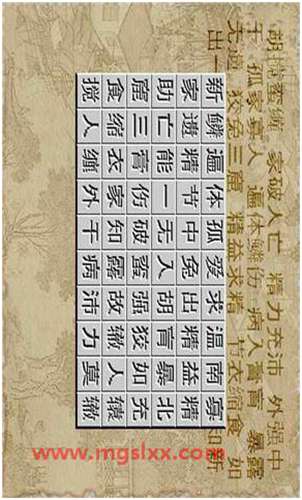 胡搅蛮缠 家破人亡 精力充沛 外强中
干 孤家寡人 遍体鳞伤 病入膏肓 暴露
无遗 狡兔三窟 精益求精 节衣缩食 如
出一 知新
新鳞遍体孤爱求温南寡
家遗精节中兔出精益
助亡能一无入胡肓暴北
窟三膏伤破蛮强狡如充
食缩衣家知露故辙人辕
搅人缠外干病沛力莫辙
www.mgslxx.com